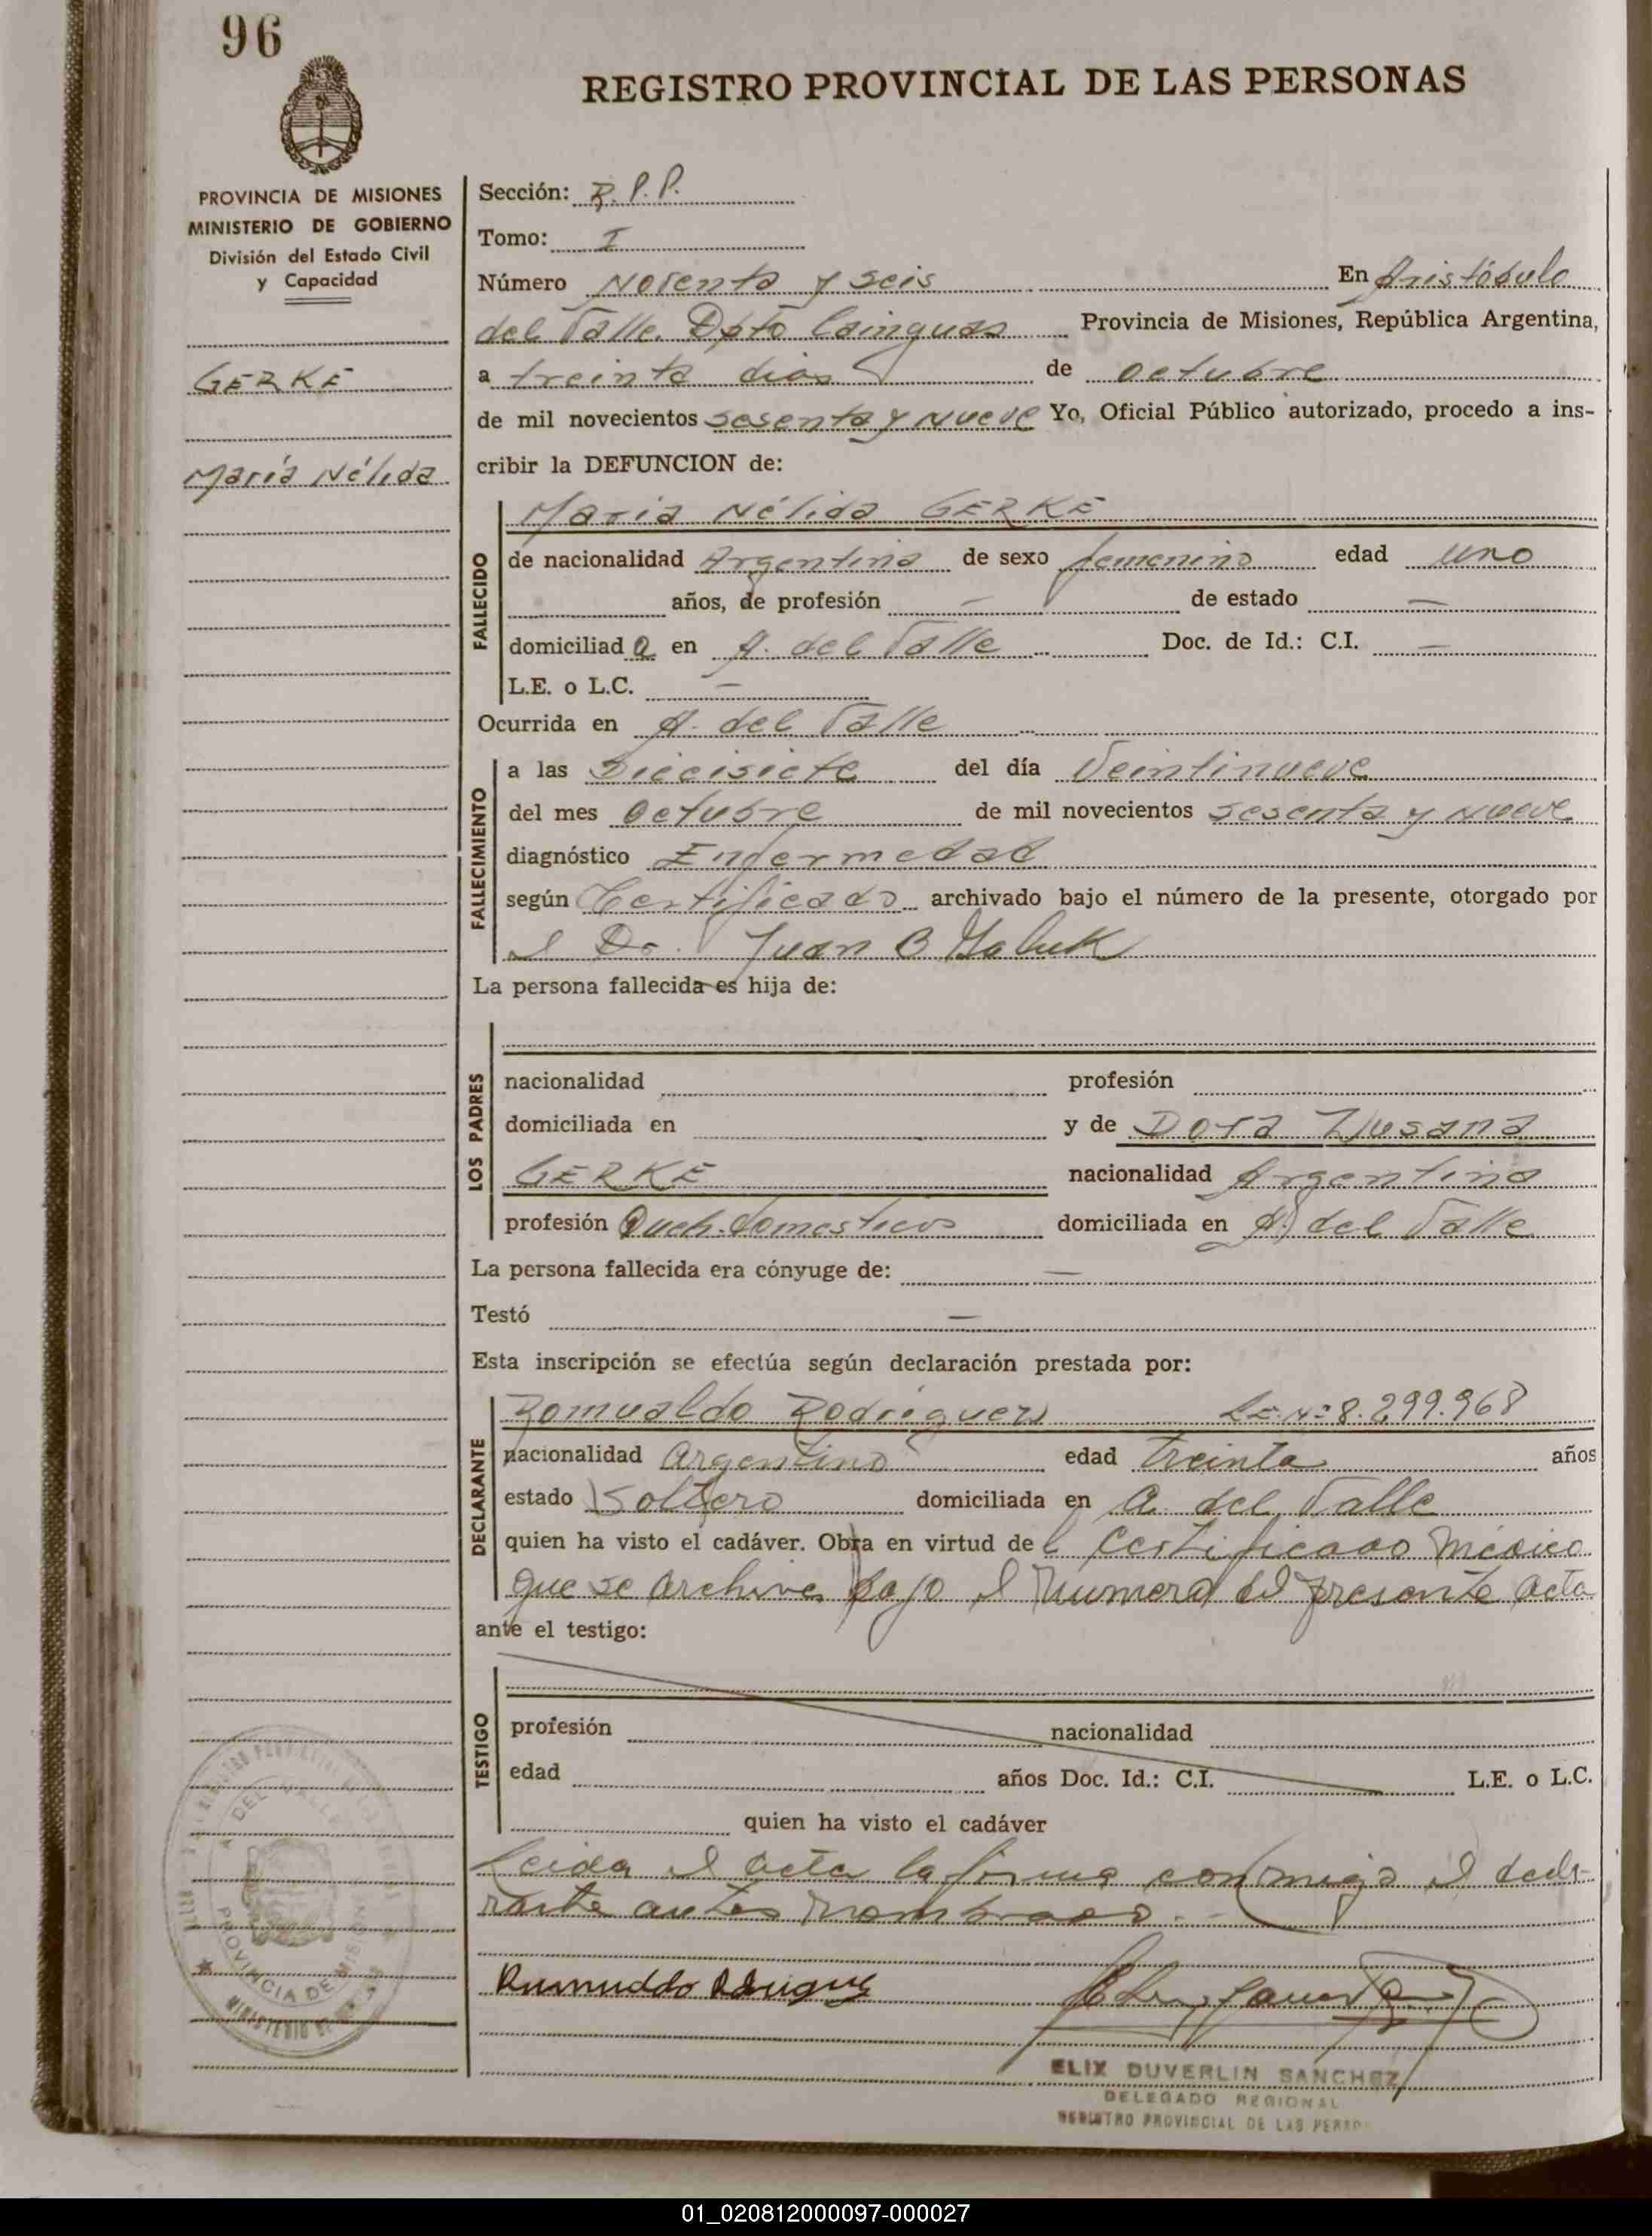 96
REGISTRO PROVINCIAL DE LAS PERSONAS
PROVINCIA DE MISIONES
MINISTERIO DE GOBIERNO
División del Estado Civil
y Capacidad
GERKE
María Nélida
Sección: R.P.P.
Tomo: I
Número Noventa y seis En Aristóbulo
del Valle. Dpto Cainguas Provincia de Misiones, República Argentina,
a treinta dias de octubre
de mil novecientos sesenta y nueve Yo, Oficial Público autorizado, procedo a ins-
cribir la DEFUNCION de:
Maria Nélida GERKE
FALLECIDO
de nacionalidad Argentina de sexo femenino edad uno
años, de profesión — de estado —
domiciliada en A. del Valle Doc. de Id.: C.I. —
L.E. o L.C. —
Ocurrida en A. del Valle
FALLECIMIENTO
a las Diecisiete del día Veintinueve
del mes Octubre de mil novecientos sesenta y nueve
diagnóstico Enfermedad
según Certificado archivado bajo el número de la presente, otorgado por
el Dr. Juan B
La persona fallecida es hija de:
LOS PADRES
nacionalidad profesión
domiciliada en y de Dora
GERKE nacionalidad Argentina
profesión Queh. domesticos domiciliada en A. del Valle
La persona fallecida era cónyuge de: —
Testó —
Esta inscripción se efectúa según declaración prestada por:
DECLARANTE
Romualdo Rodriguez L.E. Nº 8.299.968
nacionalidad argentino edad treinta años
estado Soltero domiciliada en A. del Valle
quien ha visto el cadáver. Obra en virtud del Certificado médico
que se archiva bajo el número del presente acta
ante el testigo:
TESTIGO
profesión nacionalidad
edad años Doc. Id.: C.I. L.E. o L.C.
quien ha visto el cadáver
Leida el acta la firma conmigo el decla-
rante antes nombrado.-
A DEL VALLE
PROVINCIA DE MISIONES
MINISTERIO DE
ELIX DUVERLIN SANCHEZ
DELEGADO REGIONAL
REGISTRO PROVINCIAL DE LAS PERSO
01_020812000097-000027